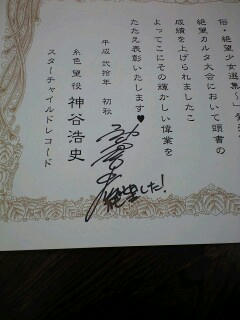 俗・絶望少女選集〜」発
絶望カルタ大会において頭書の
成績を上げられましたこ
よってここにその輝かしい偉業を
たたえ表彰いたします♥
平成 弐拾年 初秋
糸色 望 役 神谷浩史
スターチャイルドレコード
絶望した!